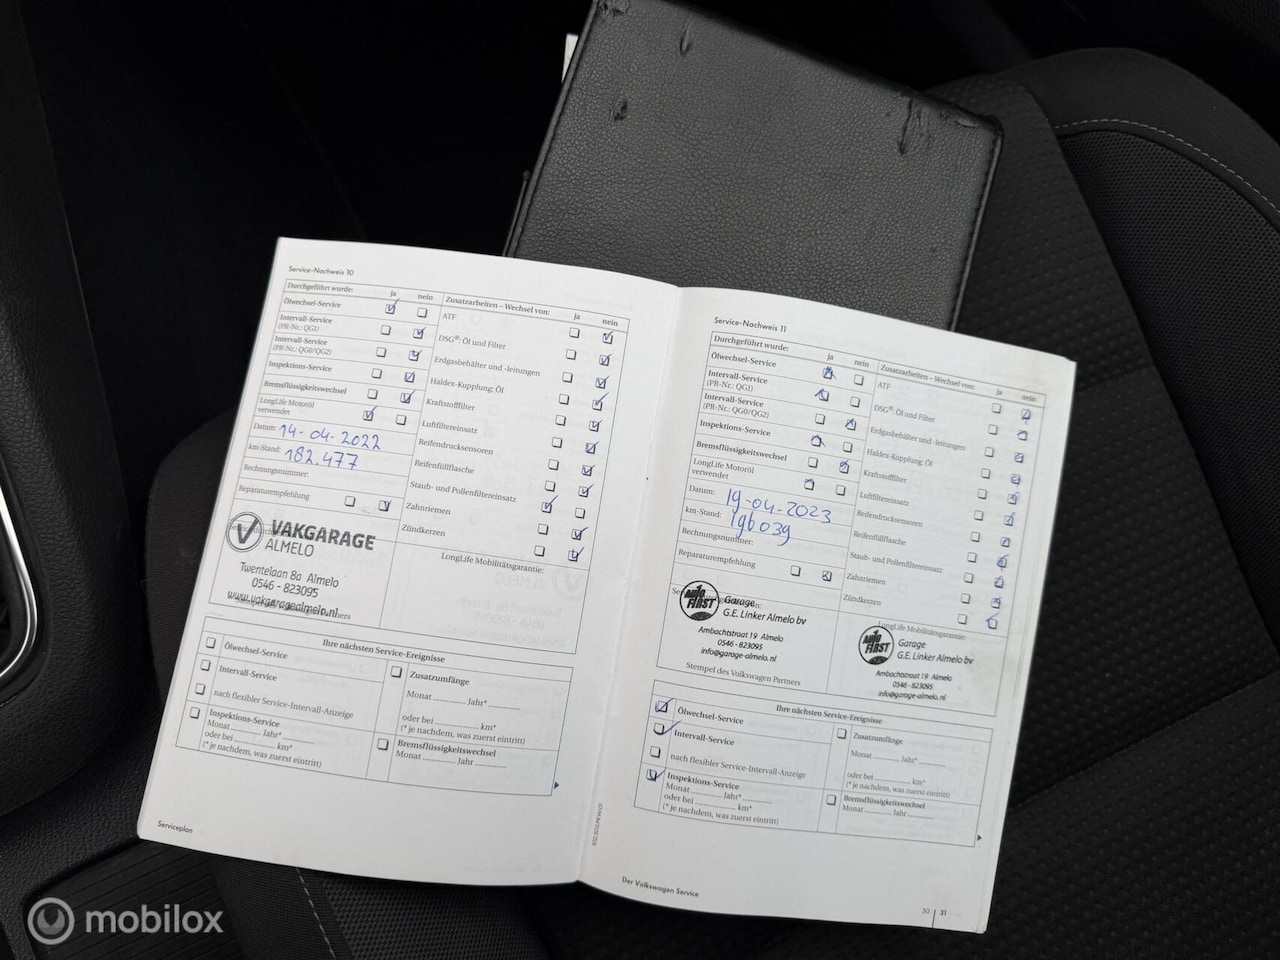 Service-Nachweis 10
Durchgeführt wurde: ja nein
Ölwechsel-Service
Intervall-Service
(PR-Nr.: QG1)
Intervall-Service
(PR-Nr.: QG0/QG2)
Inspektions-Service
Bremsflüssigkeitswechsel
LongLife Motoröl
verwendet
Datum: 14-04-2022
km-Stand: 182.477
Rechnungsnummer:
Reparaturempfehlung
VAKGARAGE
ALMELO
Twentelaan 8a Almelo
0546 - 823095
www.vakgaragealmelo.nl
Zusatzarbeiten – Wechsel von: ja nein
ATF
DSG®: Öl und Filter
Erdgasbehälter und -leitungen
Haldex-Kupplung: Öl
Kraftstofffilter
Luftfiltereinsatz
Reifendrucksensoren
Reifenfüllflasche
Staub- und Pollenfiltereinsatz
Zahnriemen
Zündkerzen
LongLife Mobilitätsgarantie:
Ihre nächsten Service-Ereignisse
Ölwechsel-Service
Intervall-Service
nach flexibler Service-Intervall-Anzeige
Inspektions-Service
Monat Jahr*
oder bei km*
(* je nachdem, was zuerst eintritt)
Zusatzumfänge
Monat Jahr*
oder bei km*
(* je nachdem, was zuerst eintritt)
Bremsflüssigkeitswechsel
Monat Jahr
Serviceplan
Service-Nachweis 11
Durchgeführt wurde: ja nein
Ölwechsel-Service
Intervall-Service
(PR-Nr.: QG1)
Intervall-Service
(PR-Nr.: QG0/QG2)
Inspektions-Service
Bremsflüssigkeitswechsel
LongLife Motoröl
verwendet
Datum: 19-04-2023
km-Stand:
Rechnungsnummer:
Reparaturempfehlung
AUTO FIRST
Garage
G.E. Linker Almelo bv
Ambachtstraat 19 Almelo
0546 - 823095
info@garage-almelo.nl
Stempel des Volkswagen Partners
Zusatzarbeiten – Wechsel von: ja nein
ATF
DSG®: Öl und Filter
Erdgasbehälter und -leitungen
Haldex-Kupplung: Öl
Kraftstofffilter
Luftfiltereinsatz
Reifendrucksensoren
Reifenfüllflasche
Staub- und Pollenfiltereinsatz
Zahnriemen
Zündkerzen
LongLife Mobilitätsgarantie:
AUTO FIRST
Garage
G.E. Linker Almelo bv
Ambachtstraat 19 Almelo
0546 - 823095
info@garage-almelo.nl
Ihre nächsten Service-Ereignisse
Ölwechsel-Service
Intervall-Service
nach flexibler Service-Intervall-Anzeige
Inspektions-Service
Monat Jahr*
oder bei km*
(* je nachdem, was zuerst eintritt)
Zusatzumfänge
Monat Jahr*
oder bei km*
(* je nachdem, was zuerst eintritt)
Bremsflüssigkeitswechsel
Monat Jahr
Der Volkswagen Service
30 31
mobilox